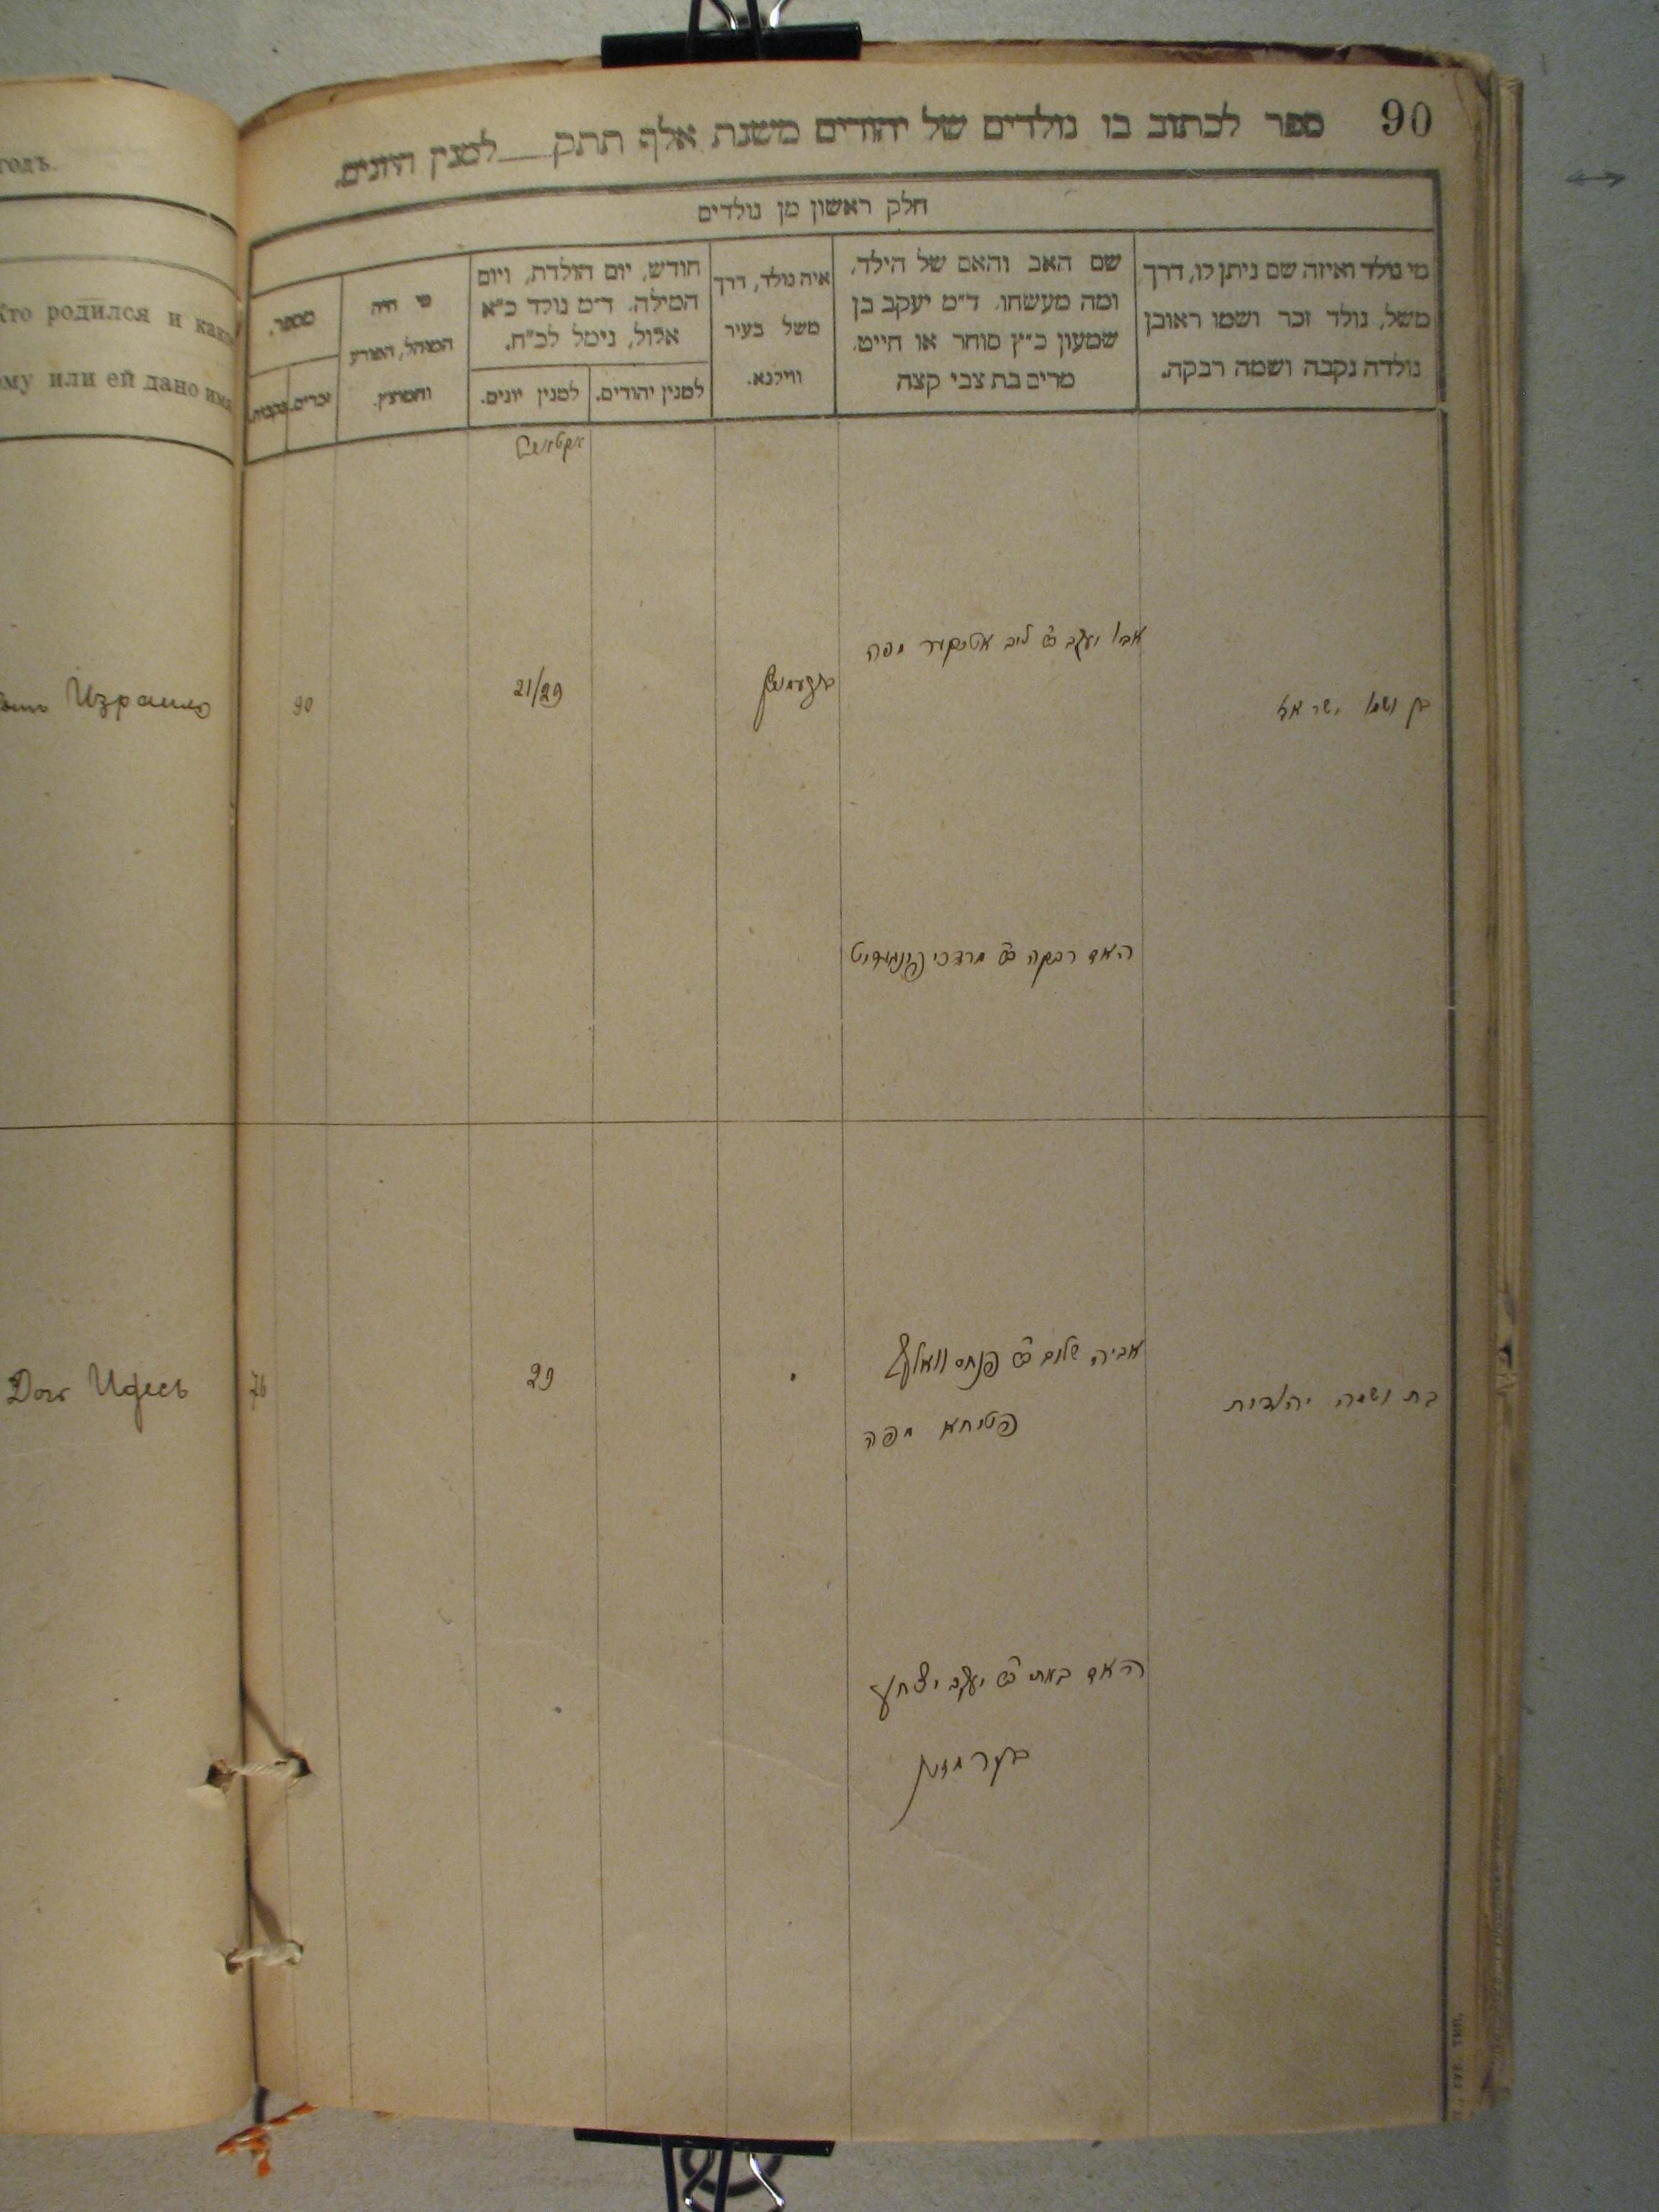 90
ספר לכתוב בו נולדים של יהודים משנת אלף תתק למנין היונים.
חלק ראשון מן נולדים
מי נולד ואיזה שם ניתן לו, דרך
משל, נולד זכר ושמו ראובן
נולדה נקבה ושמה רבקה.
שם האב והאם של הילד,
ומה מעשהו. ד״מ יעקב בן
שמעון כ״ץ סוחר או חייט,
מרים בת צבי קצה
איה נולד, דרך
משל בעיר
ווילנא.
חודש, יום הולדת, ויום
המילה. ד״מ נולד כ״א
אלול, נימל לכ״ח.
למנין יהודים.
למנין יונים.
מי היה
המוהל, הפורע
והמוצץ.
מספר.
זכרים.
נקבות.
אקטאבר
בן ושמו ישראל
אביו יעקב ב״ר ליב מפה
21/29
90
האם רבקה ב״ר מרדכי
בת ושמה יהודית
אביה שלום ב״ר פנחס
מפה
29
76
האם ב״ר יעקב יצחק
годъ.
Кто родился и како
ому или ей дано имя
Израиль
Дочь Идесь